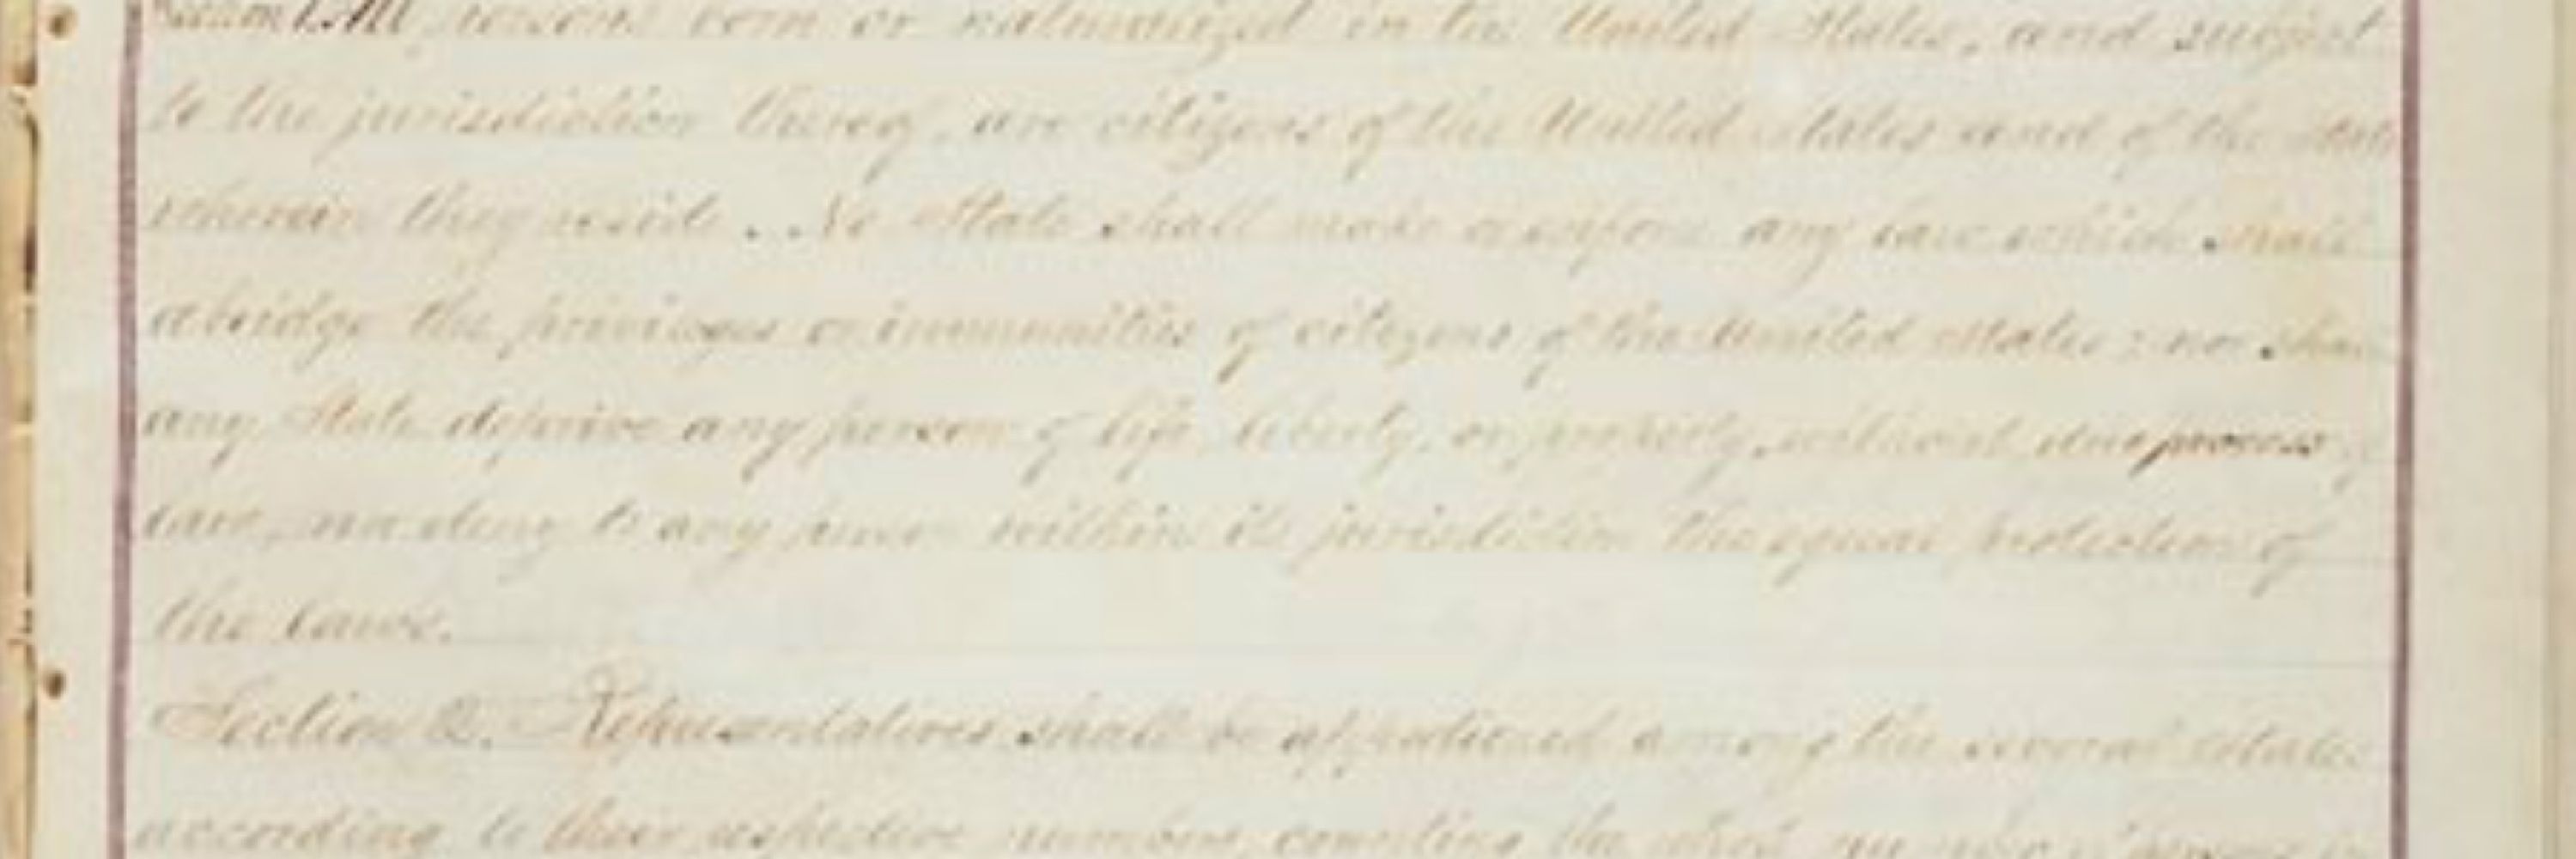 Section 1. All persons born or naturalized in the United States, and subject
to the jurisdiction thereof, are citizens of the United States and of the State
wherein they reside. No State shall make or enforce any law which shall
abridge the privileges or immunities of citizens of the United States; nor shall
any State deprive any person of life, liberty, or property, without due process of
law, nor deny to any person within its jurisdiction the equal protection of
the laws.
Section 2. Representatives shall be apportioned among the several States
according to their respective numbers, counting the whole number of persons in